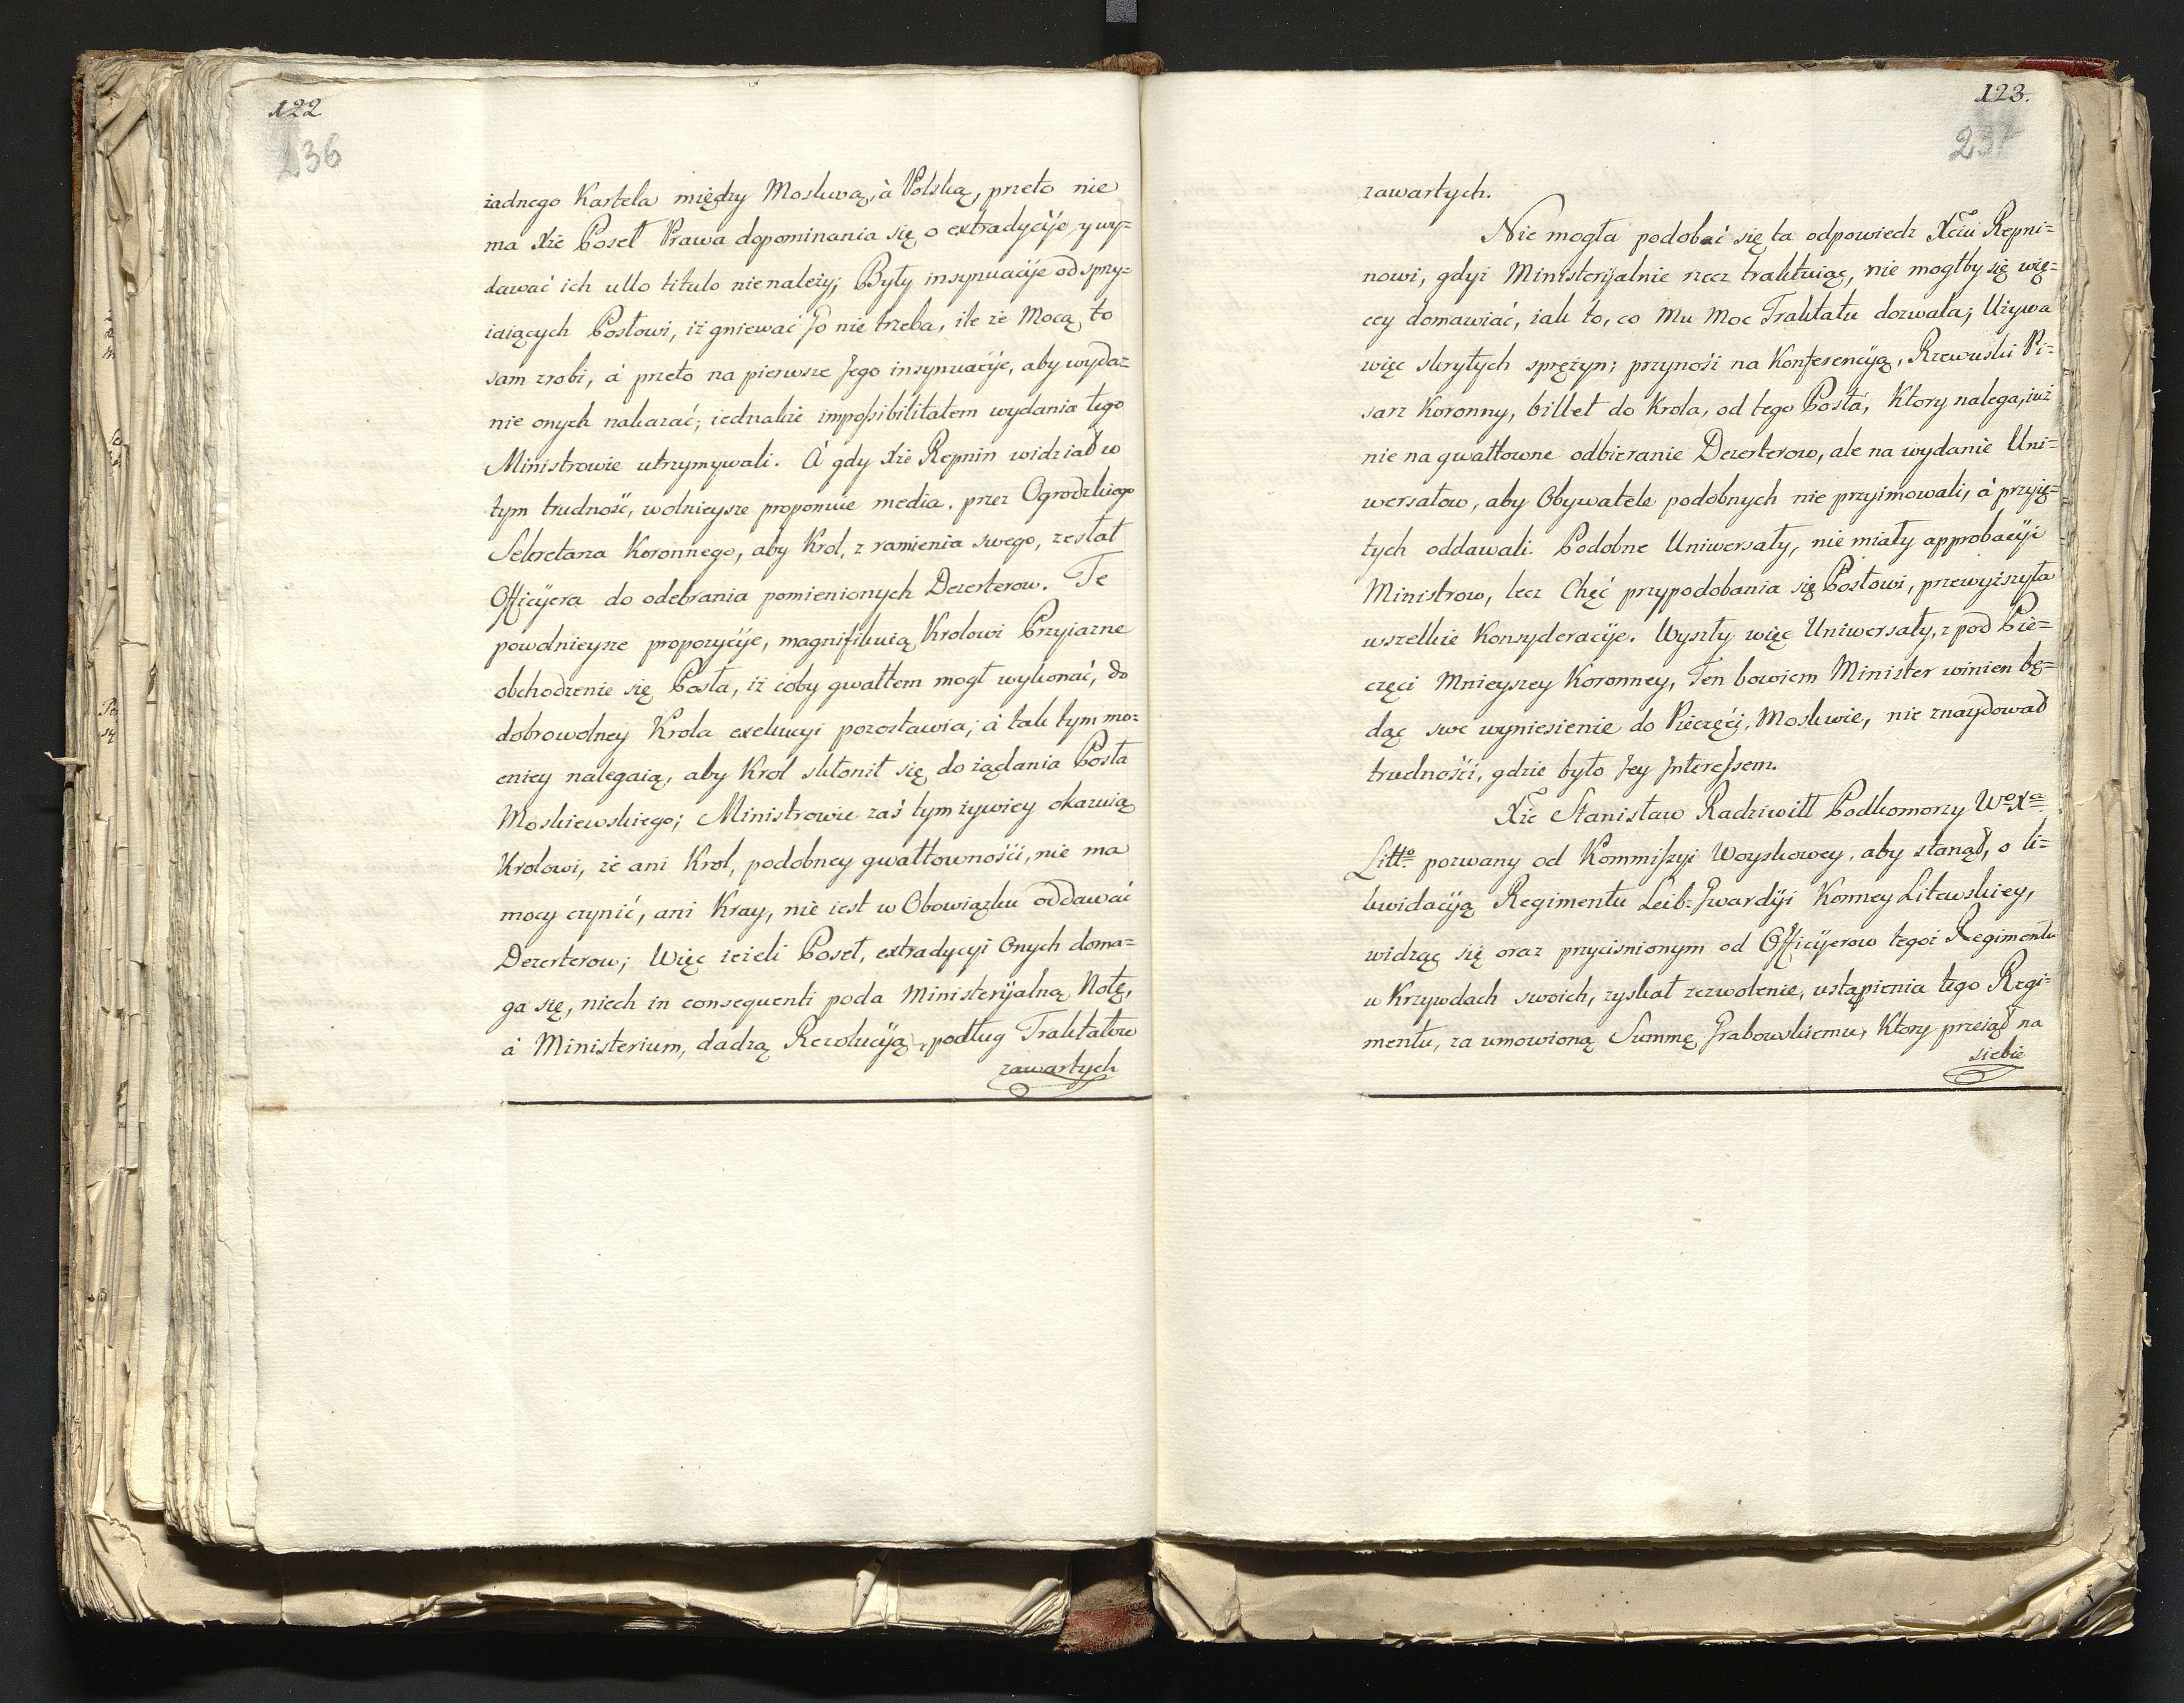 122
236
żadnego Kartela między Moskwą, à Polską, przeto nie
ma Xże Poseł Prawa dopominania się o extradycije, y wy=
dawać ich ullo titulo nienależy; Były insynuacije od spry=
iaiących Posłowi, iż gniewać Go nie trzeba, ile że Mocą to
sam zrobi, à przeto na pierwsze Jego insynuacije, aby wyda=
nie onych nakazać; iednakże impossibilitatem wydania tego
Ministrowie utrzymywali. A gdy Xże Repnin widział w
tym trudność, wolnieysze proponuie media, przez Ogrodzkiego
Sekretarza Koronnego, aby Krol, z ramienia swego, zesłał
Officyera do odebrania pomienionych Dezerterow. Te
powolnieysze propozycije, magnifikuią Krolowi Przyiazne
obchodzenie się Posła, iż coby gwałtem mogł wykonać, do
dobrowolney Krola exekucyi pozostawia; à tak tym mo=
cniey nalegaią, aby Krol skłonił się do żądania Posła
Moskiewskiego; Ministrowie zaś tym żywiey okazuią
Krolowi, że ani Krol, podobney gwałtowności, nie ma
mocy czynić, ani Kray, nie iest w Obowiązku oddawać
Dezerterow; Więc ieżeli Poseł, extradycyi Onych doma=
ga się, niech in consequenti poda Ministeryalną Notę,
à Ministerium, dadzą Rezolucyą, podług Traktatow
zawartych
123.
237
zawartych.
Nie mogła podobać się ta odpowiedz Xciu Repni=
nowi, gdyż Ministeryalnie rzecz traktuiąc, nie mogłby się wię=
cey domawiać, iak to, co Mu Moc Traktatu dozwala; Używa
więc skrytych sprężyn; przynosi na Konferencyą, Rzewuski Pi=
sarz Koronny, billet do Krola, od tego Posła, Ktory nalega, iuż
nie na gwałtowne odbieranie Dezerterow, ale na wydanie Uni=
wersałow, aby Obywatele podobnych nie przyimowali, à przyię=
tych oddawali. Podobne Uniwersały, nie miały approbacyi
Ministrow, lecz Chęć przypodobania się Posłowi, przewyższyła
wszelkie Konsyderacije. Wyszły więc Uniwersały, z pod Pie=
częci Mnieyszey Koronney, Ten bowiem Minister winien bę=
dąc swe wyniesienie do Pieczęći, Moskwie, nie znaydował
trudności, gdzie było Jey Interessem.
Xże Stanisław Radziwiłł Podkomorzy Wo Xa
Litto pozwany od Kommissyi Woyskowey, aby stanął, o li=
kwidacyą Regimentu Leib=Gwardyi Konney Litewskiey,
widząc się oraz przycisnionym od Officyerow tegoż Regimentu
w Krzywdach swoich, zyskał zezwolenie, ustąpienia tego Regi=
mentu, za umowioną Summę Grabowskiemu, Ktory przeiął na
siebie